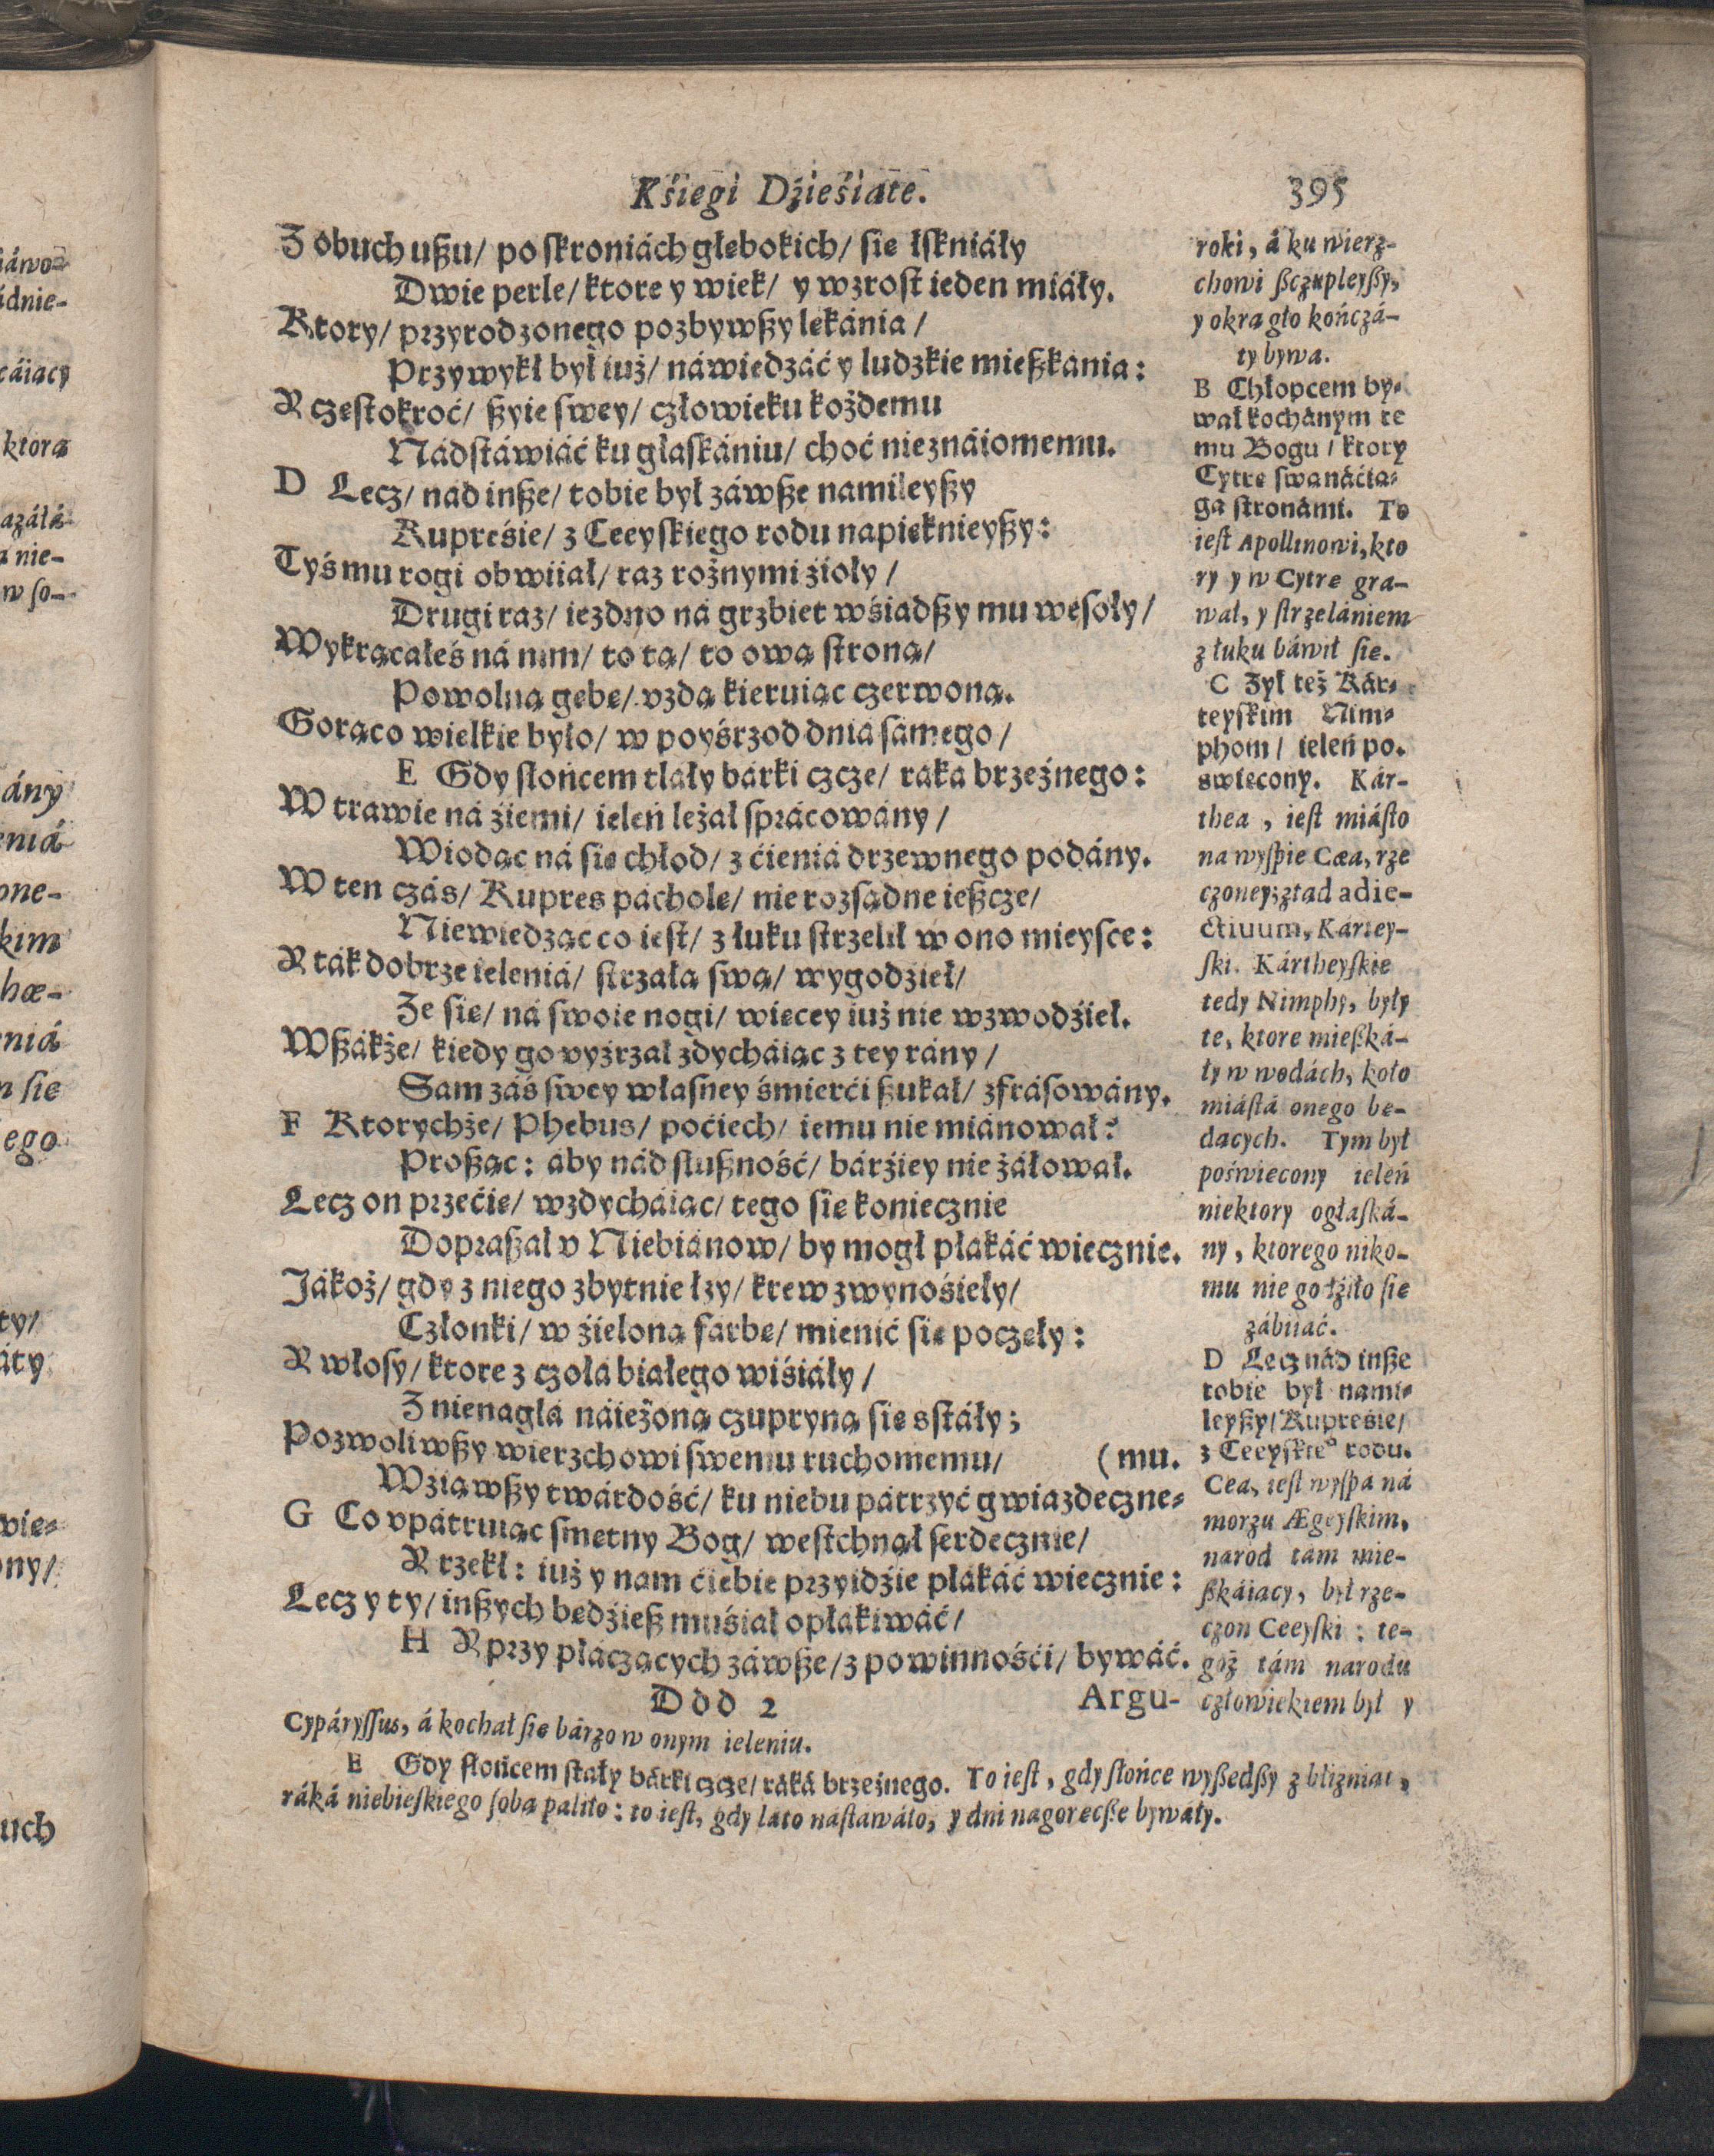 Kśiegi Dźieśiate.
395
Z obuch ußu/ po skroniách głebokich/ sie łskniáły
Dwie perle/ ktore y wiek/ y wzrost ieden miáły.
Ktory/ przyrodzonego pozbywßy lekánia/
Przywykł był iuż/ náwiedzáć y ludzkie mießkánia:
A czestokroć/ ßyie swey/ człowieku kożdemu
Nádstáwiáć ku głaskániu/ choć nieznáiomemu.
D Lecz/ nad inße/ tobie był záwße namileyßy
Kupreśie/ z Ceeyskiego rodu napieknieyßy:
Tyś mu rogi obwiiał/ raz rożnymi źioły/
Drugi raz/ iezdno ná grzbiet wśiadßy mu wesoły/
Wykrącałeś ná nim/ to tą/ to ową stroną/
Powolną gebe/ vzdą kieruiąc czerwoną.
Gorąco wielkie było/ w poyśrzod dniá sámego/
E Gdy słońcem tlały bárki czcze/ ráká brzeźnego:
W trawie ná źiemi/ ieleń leżał sprácowány/
Wiodąc ná sie chłod/ z ćieniá drzewnego podány.
W ten czás/ Kupres páchole/ nie rozsądne ießcze/
Niewiedząc co iest/ z łuku strzelił w ono mieysce:
A ták dobrze ieleniá/ strzałą swą/ wygodźieł/
Ze sie/ ná swoie nogi/ wiecey iuż nie wzwodźieł.
Wßákże/ kiedy go vyźrzał zdycháiąc z tey rány/
Sam záś swey własney śmierći ßukał/ zfrásowány.
F Ktorychże/ Phebus/ poćiech/ iemu nie miánował?
Proßąc: aby nád słußność/ bárźiey nie żáłował.
Lecz on przećie/ wzdycháiąc/ tego sie koniecznie
Dopraßał v Niebiánow/ by mogł płakáć wiecznie.
Jákoż/ gdy z niego zbytnie łzy/ krew zwynośieły/
Członki/ w źieloną farbe/ mienić sie poczeły:
A włosy/ ktore z czołá białego wiśiáły/
Z nienagłá náieżoną czupryną sie sstáły;
Pozwoliwßy wierzchowi swemu ruchomemu/ (mu.
Wziąwßy twárdość/ ku niebu pátrzyć gwiazdeczne-
G Co vpátruiąc smetny Bog/ westchnął serdecznie/
A rzekł: iuż y nam ćiebie przyidźie płákáć wiecznie:
Lecz y ty/ inßych bedźieß muśiał opłakiwáć/
H A przy płáczących záwße/ z powinnośći/ bywáć.
Ddd 2 Argu-
roki, á ku wierz-
chowi ßczupleyßy,
y okrągło kończá-
ty bywa.
B Chłopcem by-
wał kochánym te
mu Bogu/ ktory
Cytre swą náćią-
ga stronámi. To
iest Apollinowi, kto
ry y w Cytre gra-
wał, y strzelániem
z łuku báwił sie.
C Zył też Kár-
teyskim Nim-
phom/ ieleń po.
święcony. Kár-
thea, iest miásto
na wyspie Cæa, rze
czoney; ztad adie-
ctiuum, Kártey-
ski. Kártheyskie
tedy Nimphy, były
te, ktore mießká-
ły w wodách, koło
miástá onego be-
dacych. Tym był
poświecony ieleń
niektory ogłaská-
ny, ktorego niko-
mu nie godźiło sie
zábiiać.
D Lecz nád inße
tobie był nami-
leyßy/ Kupreśie/
z Ceeyskie° rodu.
Cea, iest wyspa ná
morzu Ægeyskim,
narod tám mie-
ßkáiacy, był rze-
czon Ceeyski: te-
goż tám narodu
człowiekiem był y
Cypáryssus, á kochał sie bárzo w onym ieleniu.
E Gdy słońcem stały bárki czcze/ ráká brzeźnego. To iest, gdy słońce wyßedßy z bliźniat,
ráká niebieskiego soba paliło: to iest, gdy lato nástawáło, y dni nagoreċße bywáły.